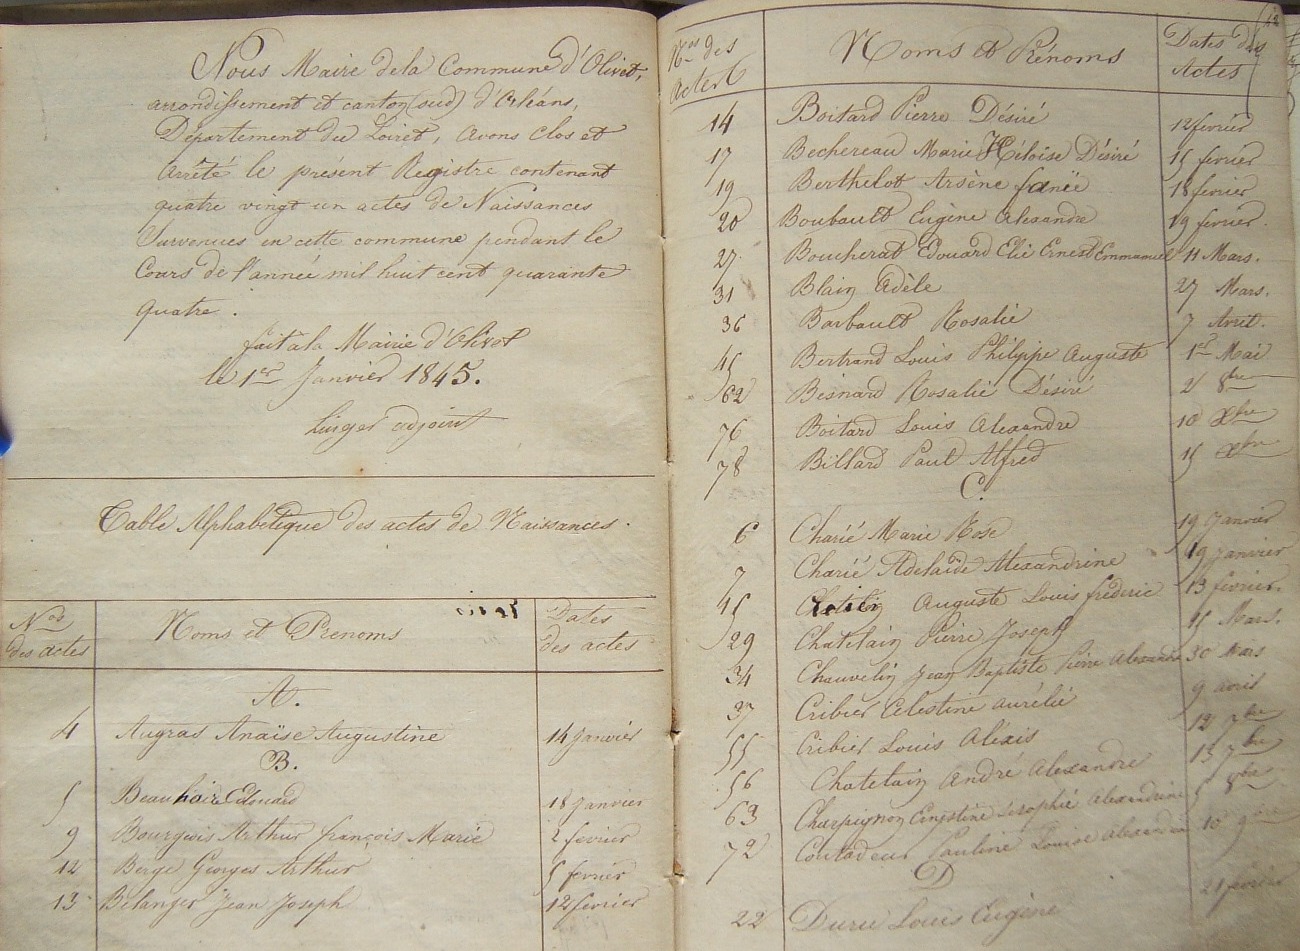 Nous Maire de la Commune d'Olivet,
arrondissement et canton (sud) d'Orléans,
Département du Loiret, avons clos et
arrêté le présent Registre contenant
quatre vingt un actes de Naissances
survenues en cette commune pendant le
Cours de l'année mil huit cent quarante
quatre.
fait à la Mairie d'Olivet
le 1er Janvier 1845.
adjoint
Table Alphabétique des actes de Naissances.
Nos des actes Noms et Prenoms Dates des actes
A.
4 Augras Anaïse Augustine 14 Janvier
B.
5 Beauhaire Edouard 18 Janvier
9 Bourgeois Arthur françois Marie 2 fevrier
12 Berge Georges Arthur 5 fevrier
13 Belanger Jean Joseph 12 fevrier
Nos des Actes Noms et Prénoms Dates des Actes
14 Boitard Pierre Désiré 12 fevrier
17 Bechereau Marie Héloise Désiré 15 fevrier
19 Berthelot Arsène 18 fevrier
20 Boubault Eugène Alexandre 19 fevrier.
27 Boucherat Edouard Elie Ernest Emmanuel 11 Mars.
31 Blain Adèle 27 Mars.
36 Barbault Rosalie 7 Avril.
45 Bertrand Louis Philippe Auguste 1er Mai
62 Besnard Rosalie Désiré 2 8bre
76 Boitard Louis Alexandre 10 Xbre
78 Billard Paul Alfred 15 Xbre
C.
6 Charié Marie Rose 19 Janvier
7 Charié Adelaïde Alexandrine 19 Janvier
15 Auguste Louis frédéric 13 fevrier.
29 Chatelain Pierre Joseph 15 Mars.
34 Chauvelin Jean Baptiste Pierre Alexandre 30 Mars
37 Cribier Celestine aurélie 9 avril
55 Cribier Louis Alexis 12 7bre
56 Chatelain André Alexandre 13 7bre
63 Charpignon Sophie Alexandrine 5 8bre
72 Coutadeur Pauline Louise Alexandrine 10 9bre
D
22 Duru Louis Eugène 21 fevrier